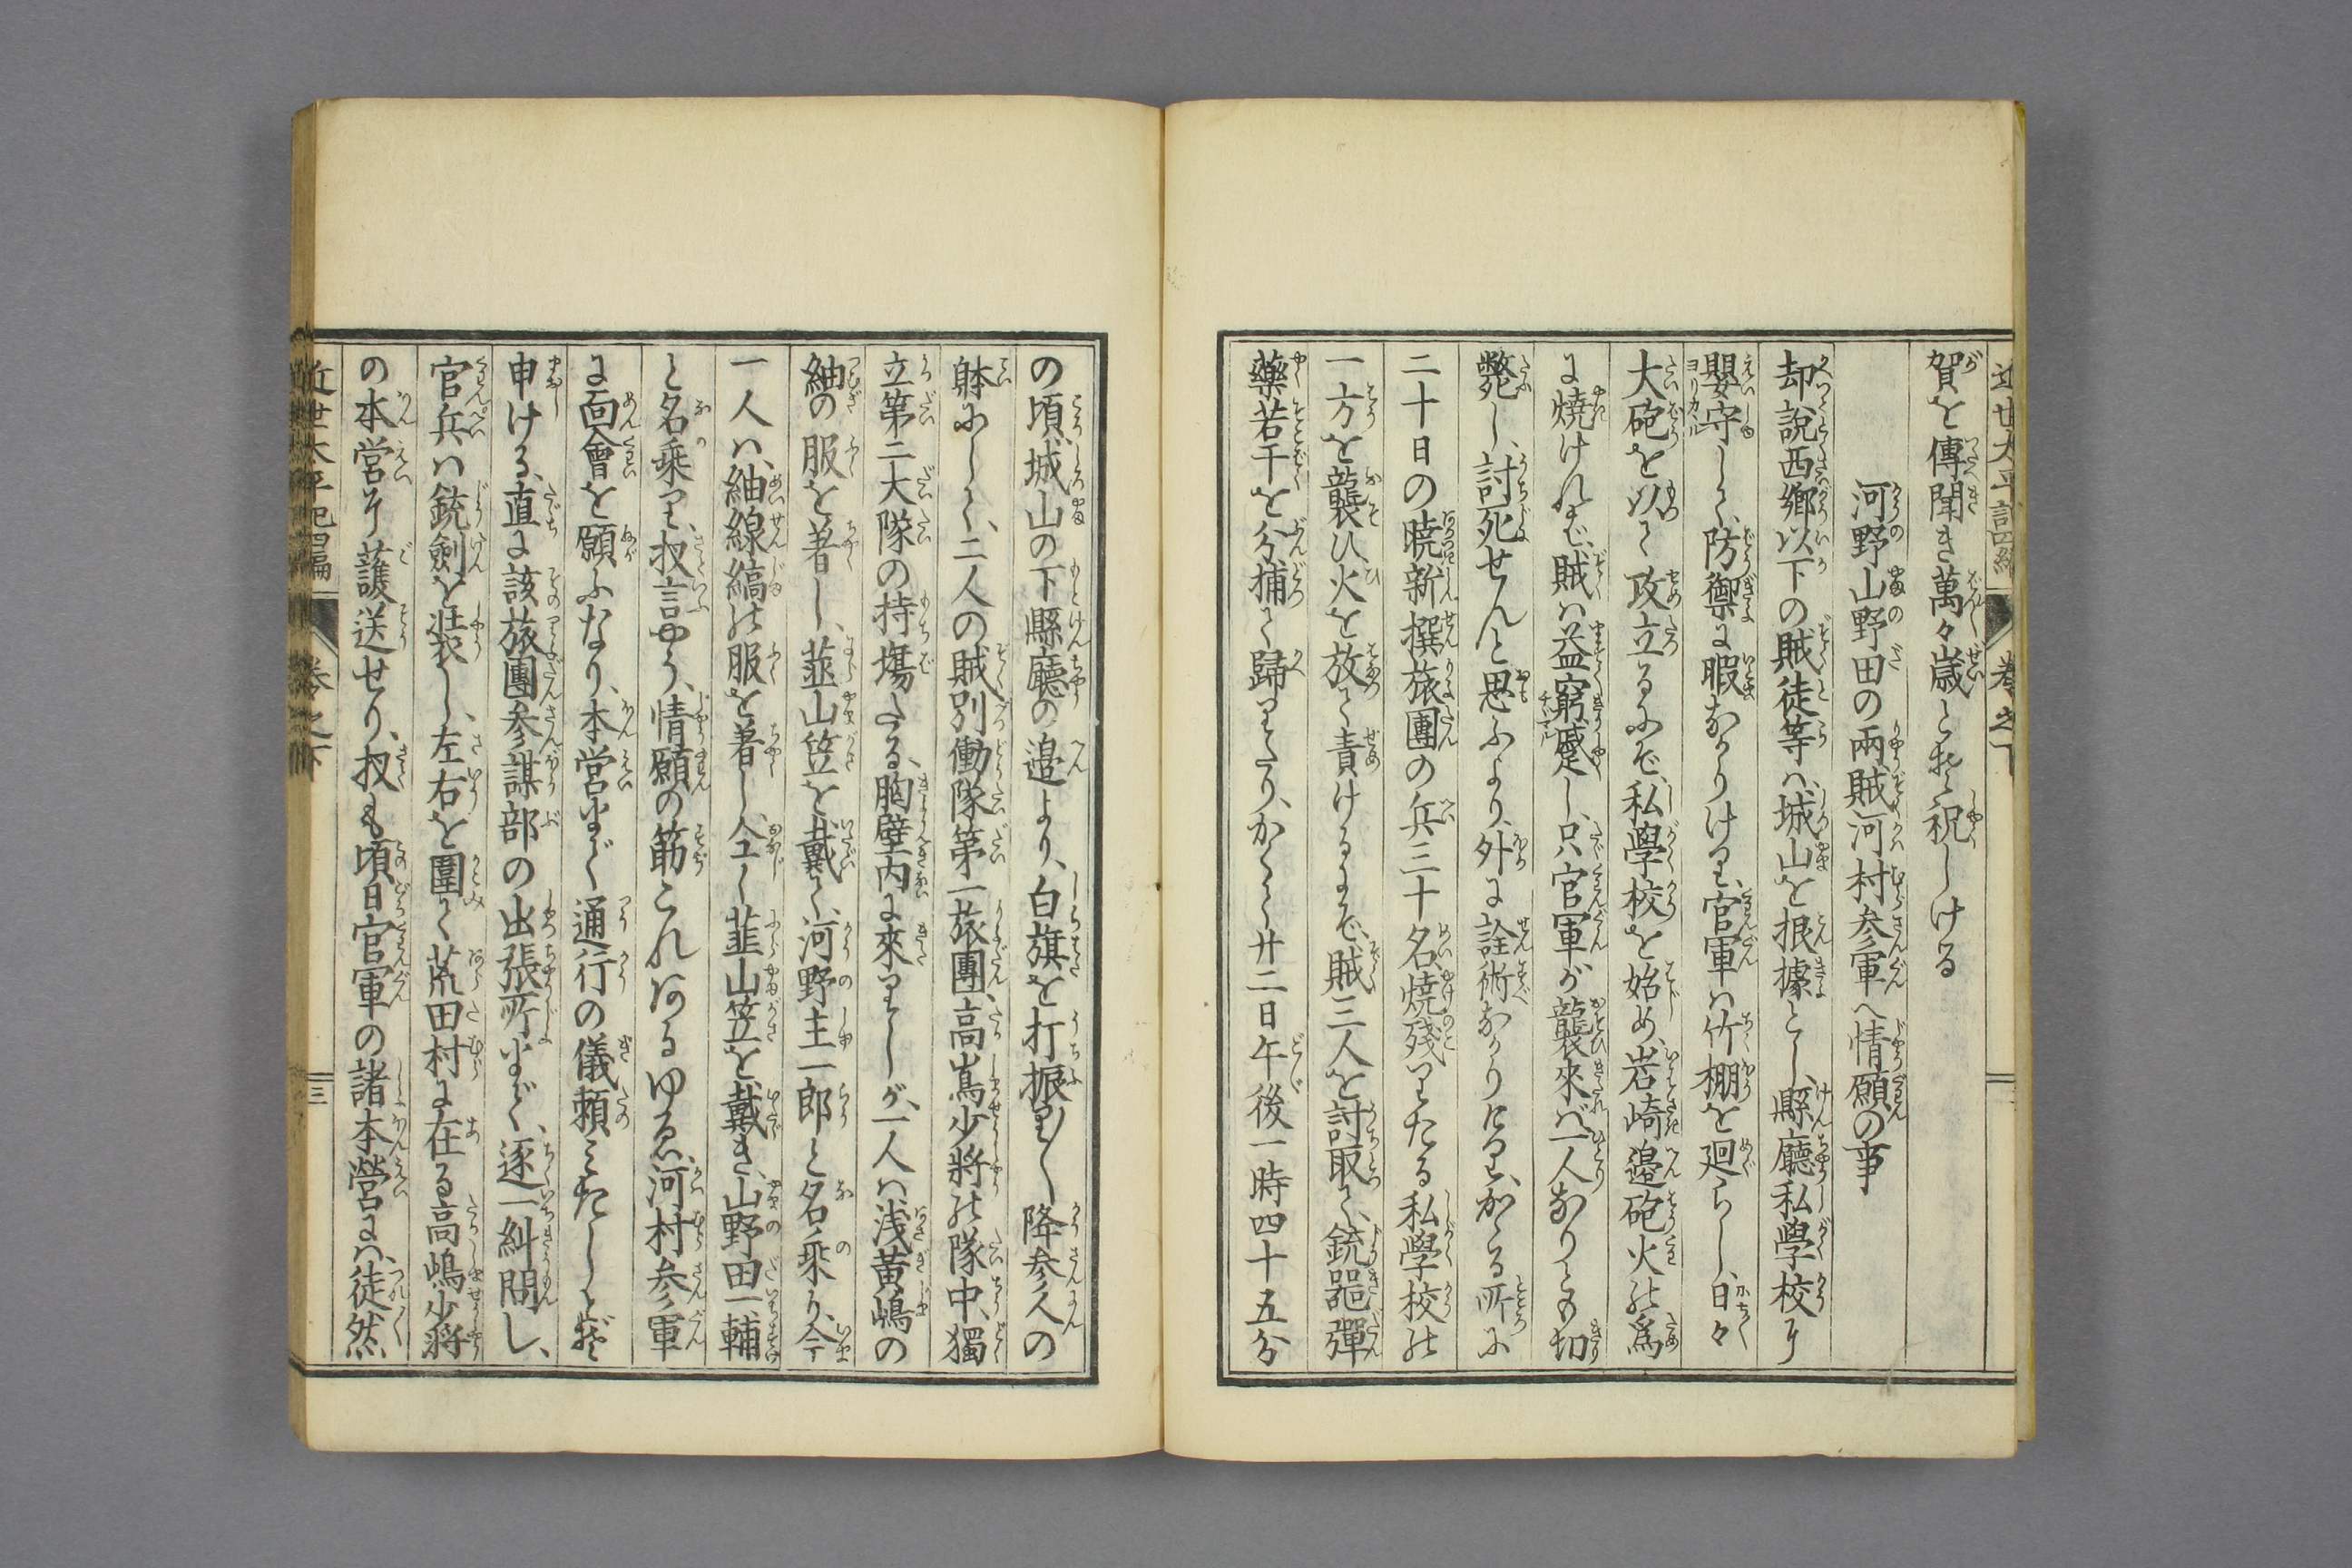 近世太平記四編 巻之下
賀を傳聞き萬々歳とぞ祝しける
河野山野田の兩賊河村参軍へ情願の事
却説西郷以下の賊徒等ハ、城山を根據とし、縣廳私學校に
嬰守して、防禦に暇なかりけり、官軍ハ竹棚を廻らし、日々
大砲を以て攻立るにぞ、私學校を始め、岩崎邊砲火の爲
に燒けれバ、賊ハ益窮蹙し、只官軍が襲來バ一人なりとも切
斃し、討死せんと思ふより、外に詮術なかりける、かゝる所に
二十日の暁新撰旅團の兵三十名、燒殘りたる私學校の
一方を襲ひ、火を放て責けるにぞ、賊三人を討取て、銃噐彈
藥若干を分捕て歸りたり、かくて廿二日午後一時四十五分
の頃、城山の下縣廳の邉より、白旗を打振り〳〵降参人の
躰にして、二人の賊別働隊第一旅團、高嶌少將の隊中、獨
立第二大隊の持塲たる、胸壁内に來りしが、一人ハ浅黄嶋の
紬の服を著し、韮山笠を戴て、河野主一郎と名乗り、今
一人ハ、紬線縞の服を着し、仝く韮山笠を戴き、山野田一輔
と名乗り、扨言やう、情願の筋これあるゆゑ、河村参軍
に面會を願ふなり、本営まで通行の儀頼みたしとぞ
申ける、直に該旅團参謀部の出張所まで、逐一糾問し、
官兵ハ銃劍を裝し、左右を圍て荒田村に在る高嶋少將
の本営に護送せり、扨も頃日官軍の諸本營にハ、徒然
近世太平記四編 巻之下 三